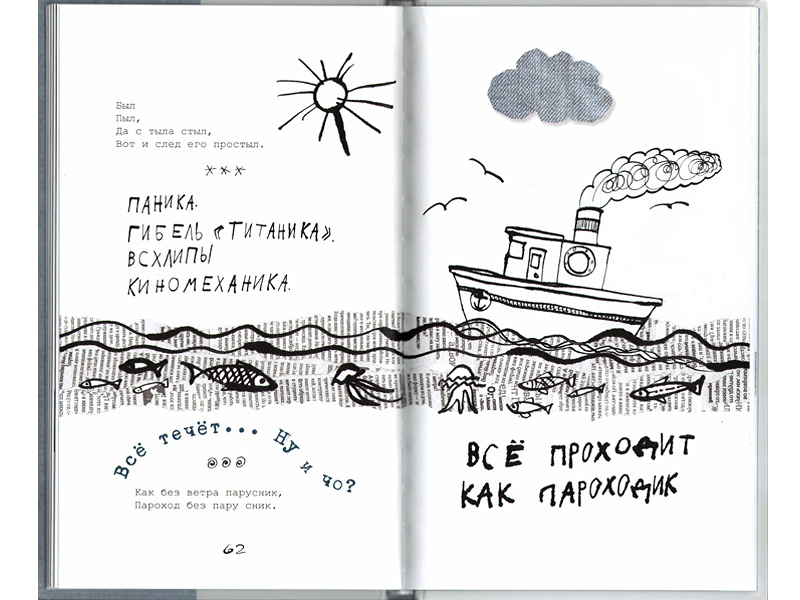 Был
Пыл,
Да с тыла стыл,
Вот и след его простыл.
***
ПАНИКА.
ГИБЕЛЬ «ТИТАНИКА».
ВСХЛИПЫ
КИНОМЕХАНИКА.
Всё течёт... Ну и чо?
Как без ветра парусник,
Пароход без пару сник.
62
ВСЁ ПРОХОДИТ
КАК ПАРОХОДИК